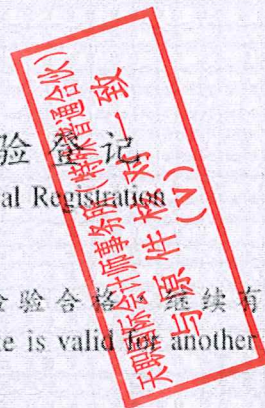 验登记
al Registration
检验合格，继续有
te is valid for another
天职国际会计师事务所(特殊普通合伙)
与原件核对一致
(V)